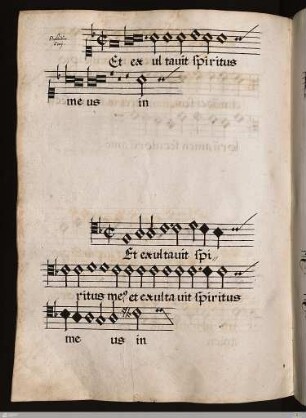 Et ex ul tauit spiritus
me us in
Et exultauit spi,
ritus meꝰ et exulta uit spiritus
me us in